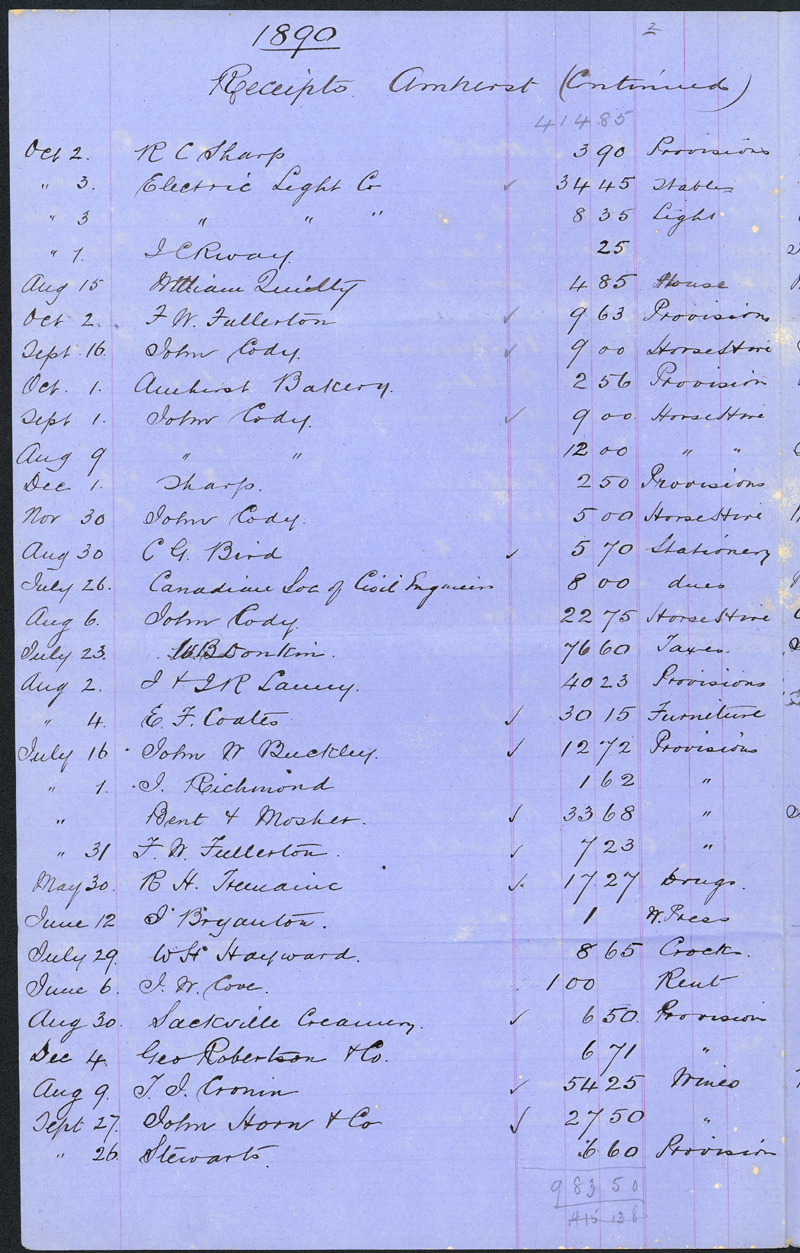 1890
2
Receipts Amherst (Continued)
414 85
Oct 2. R C Sharp 3 90 Provisions
" 3. Electric Light Co ✓ 34 45 Stables
" 3 " " " 8 35 Light
" 7. 25
Aug 15 William Quilty 4 85 House
Oct 2. F. W. Fullerton ✓ 9 63 Provisions
Sept 16. John Cody. ✓ 9 00 Horse Hire
Oct. 1. Amherst Bakery. 2 56 Provision
Sept 1. John Cody. ✓ 9 00 Horse Hire
Aug 9 " " 12 00 " "
Dec 1. Sharp. 2 50 Provisions
Nov 30 John Cody. 5 00 Horse Hire
Aug 30 C G. Bird ✓ 5 70 Stationery
July 26. Canadian Soc of Civil Engineers 8 00 dues
Aug 6. John Cody. 22 75 Horse Hire
July 23. W B Donkin. 76 60 Taxes.
Aug 2. J & J R Lamy. 40 23 Provisions
" 4. E. F. Coates ✓ 30 15 Furneture
July 16 John W Buckley. ✓ 12 72 Provisions
" 1. J. Richmond 1 62 "
" Bent & Mosher. ✓ 33 68 "
" 31 F. W. Fullerton. ✓ 7 23 "
May 30. R H. Tremaine ✓ 17 27 Drugs.
June 12 J Bryanton. 1 W. Press
July 29. W H Hayward. 8 65 Crock.
June 6. J. W. Cove. 100 Rent
Aug 30. Sackville Creamery. ✓ 6 50 Provision
Dec 4. Geo Robertson & Co. 6 71 "
Aug 9. T. J. Cronin ✓ 54 25 Wines
Sept 27. John Horn & Co ✓ 27 50 "
" 26. Stewarts. 6 60 Provision
983 50